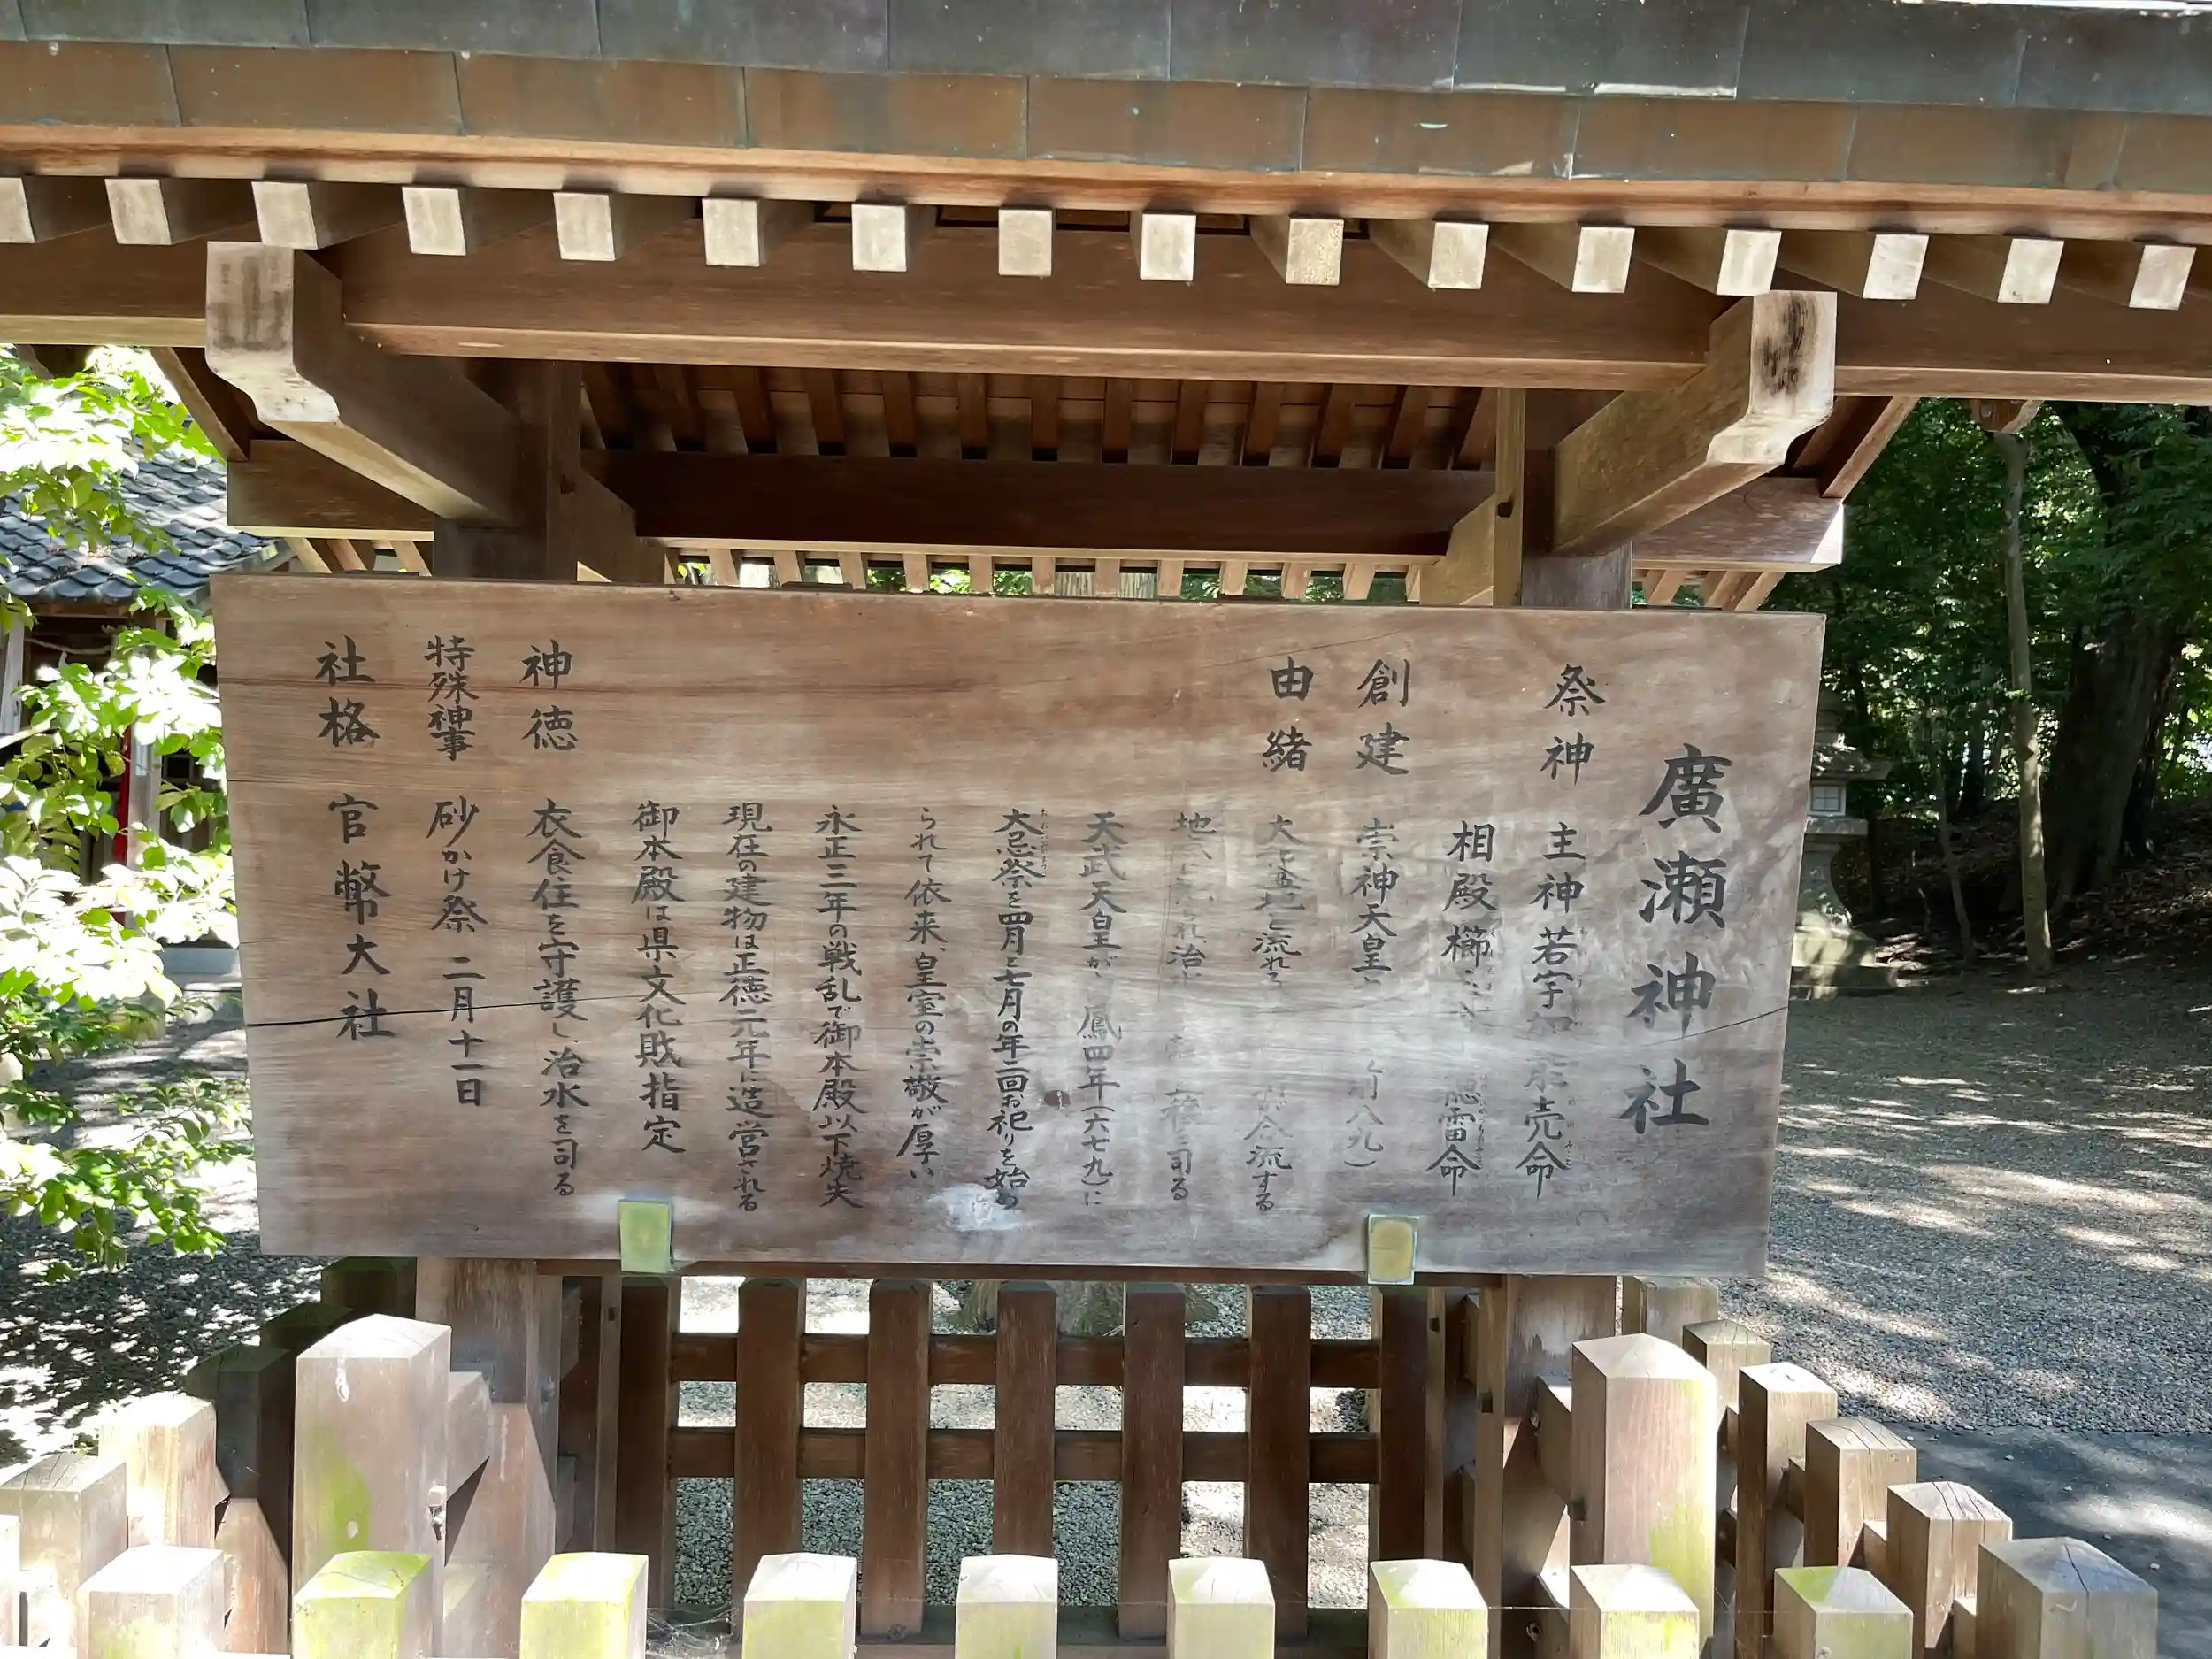 廣瀬神社
祭神 主神 若宇 売命
相殿 櫛 雷命
創建 崇神天皇 前八九）
由緒 大 地を流れる が合流する
地 治 司る
天武天皇が 鳳四年（六七九）に
大忌祭を四月と七月の年二回お祀りを始め
られて依来、皇室の崇敬が厚い
永正三年の戦乱で御本殿以下焼失
現在の建物は正徳元年に造営される
御本殿は県文化財指定
神徳 衣食住を守護し、治水を司る
特殊神事 砂かけ祭 二月十一日
社格 官幣大社